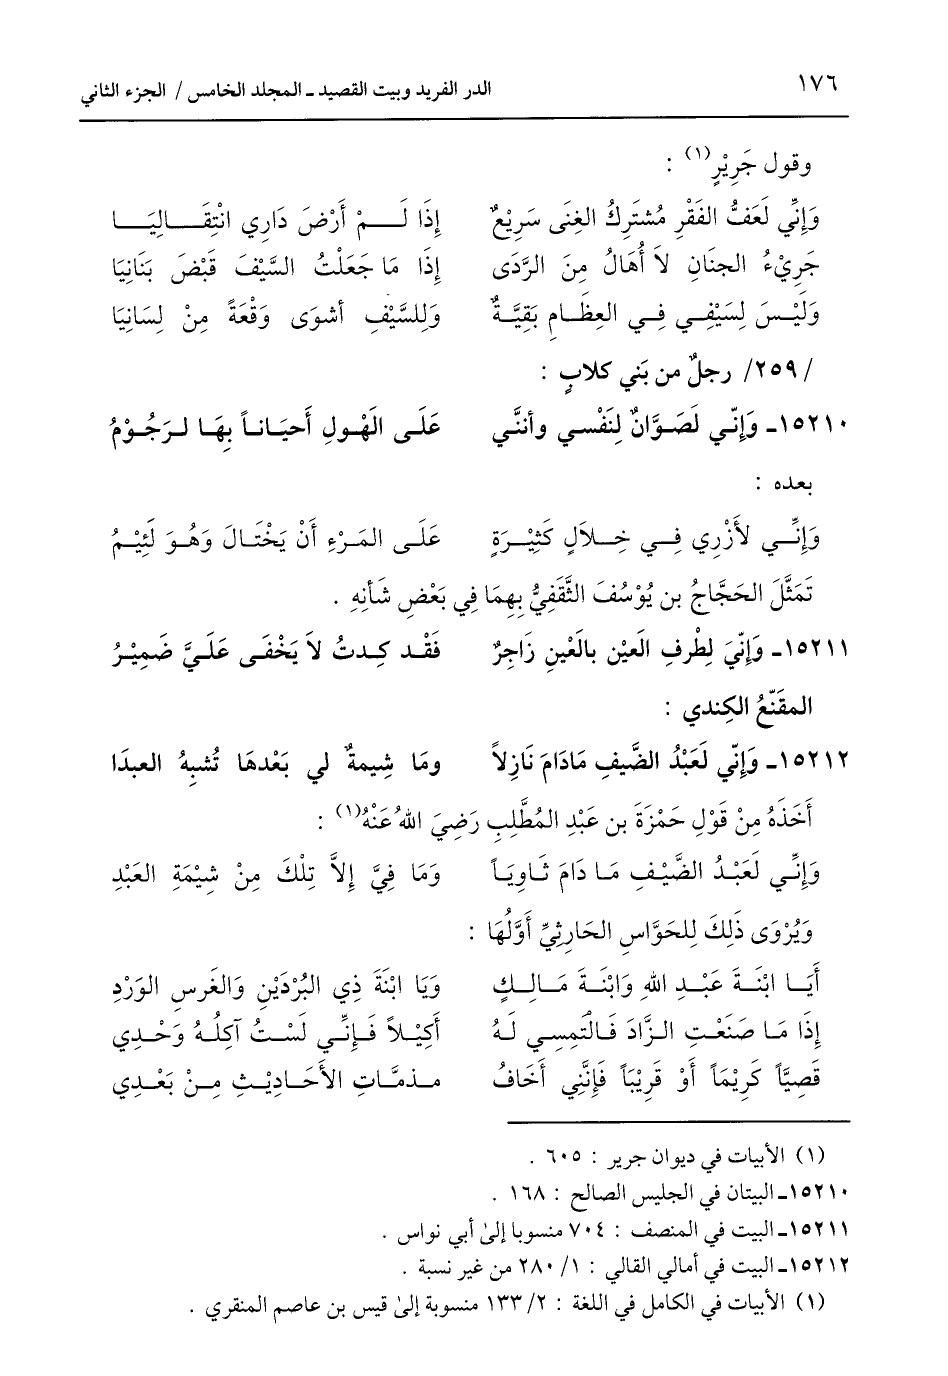 ١٧٦ الدر الفريد وبيت القصيد ـ المجلد الخامس / الجزء الثاني
وقول جَرِيْرٍ(١) :
وَإِنِّي لَعَفُّ الفَقْرِ مُشتَرِكُ الغِنَى سَرِيْعٌ إِذَا لَـــمْ أَرْضَ دَارِي انْتِقَـــالِيَـــا
جَرِيْءُ الجنَانِ لاَ أُهَالُ مِنَ الرَّدَى إِذَا مَا جَعَلْتُ السَّيْفَ قَبْضَ بَنَانِيَا
وَلَيْـسَ لِسَيْفِـي فِـي العِظَـامِ بَقِيَّـةٌ وَلِلسَّيْفِ أشوَى وَقْعَةً مِنْ لِسَانِيَا
/٢٥٩/ رجلٌ من بَني كلابٍ :
١٥٢١٠ـ وَإِنّي لَصَوَّانٌ لِنَفْسي وأننَّي عَلَـى الَهْولِ أَحيَـانـاً بِهَـا لـرَجُـوْمُ
بعده :
وَإِنِّـي لأَزْرِي فِـي خِـلاَلٍ كَثِيْـرَةٍ عَلَـى المَـرْءِ أَنْ يَخْتَـالَ وَهُـوَ لَئِيْـمُ
تَمَثَّلَ الحَجَّاجُ بن يُوْسُفَ الثَّقَفِيُّ بِهِمَا فِي بَعْضِ شَأنِهِ .
١٥٢١١ـ وَإِنّيَ لِطْرفِ الَعيْن بالَعْينِ زَاجِرٌ فَقْـد كِـدتُ لاَ يَخْفَـى عَلَـيَّ ضَمِيْـرُ
المقَنّعُ الكِندي :
١٥٢١٢ـ وَإِنّي لَعَبْدُ الضَّيفِ مَادَامَ نَازِلاً ومَا شِيمةٌ لي بَعْدهَا تُشبِهُ العبدَا
أَخَذَهُ مِنْ قَوْلِ حَمْزَةَ بن عَبْدِ المُطَّلِبِ رَضِيَ اللهُ عَنْهُ(١) :
وَإِنِّـي لَعَبْـدُ الضَّيْـفِ مَـا دَامَ ثَـاوِيَـاً وَمَا فِيَّ إِلاَّ تِلْكَ مِنْ شِيْمَةِ العَبْدِ
وَيُرْوَى ذَلِكَ لِلحَوَّاسِ الحَارِثِيِّ أَوَّلُهَا :
أَيَـا ابْنَـةَ عَبْـدِ اللهِ وَابْنَـةَ مَـالِـكٍ وَيَا ابْنَةَ ذِي البُرْدَيْنِ وَالغَرسِ الوَرْدِ
إِذَا مَـا صَنَعْـتِ الـزَّادَ فَـالْتَمِسِـي لَـهُ أَكِيْـلاً فَـإِنِّـي لَسْـتُ آكِلُـهُ وَحْـدِي
قَصِيَّاً كَرِيْمَاً أَوْ قَرِيْبَاً فَإِنَّنِي أَخَافُ مـذمَّـاتِ الأَحَـادِيْـثِ مِـنْ بَعْـدِي
(١) الأبيات في ديوان جرير : ٦٠٥ .
١٥٢١٠ـ البيتان في الجليس الصالح : ١٦٨ .
١٥٢١١ـ البيت في المنصف : ٧٠٤ منسوبا إلىٰ أبي نواس .
١٥٢١٢ـ البيت في أمالي القالي : ١/ ٢٨٠ من غير نسبة .
(١) الأبيات في الكامل في اللغة : ٢/ ١٣٣ منسوبة إلىٰ قيس بن عاصم المنقري .